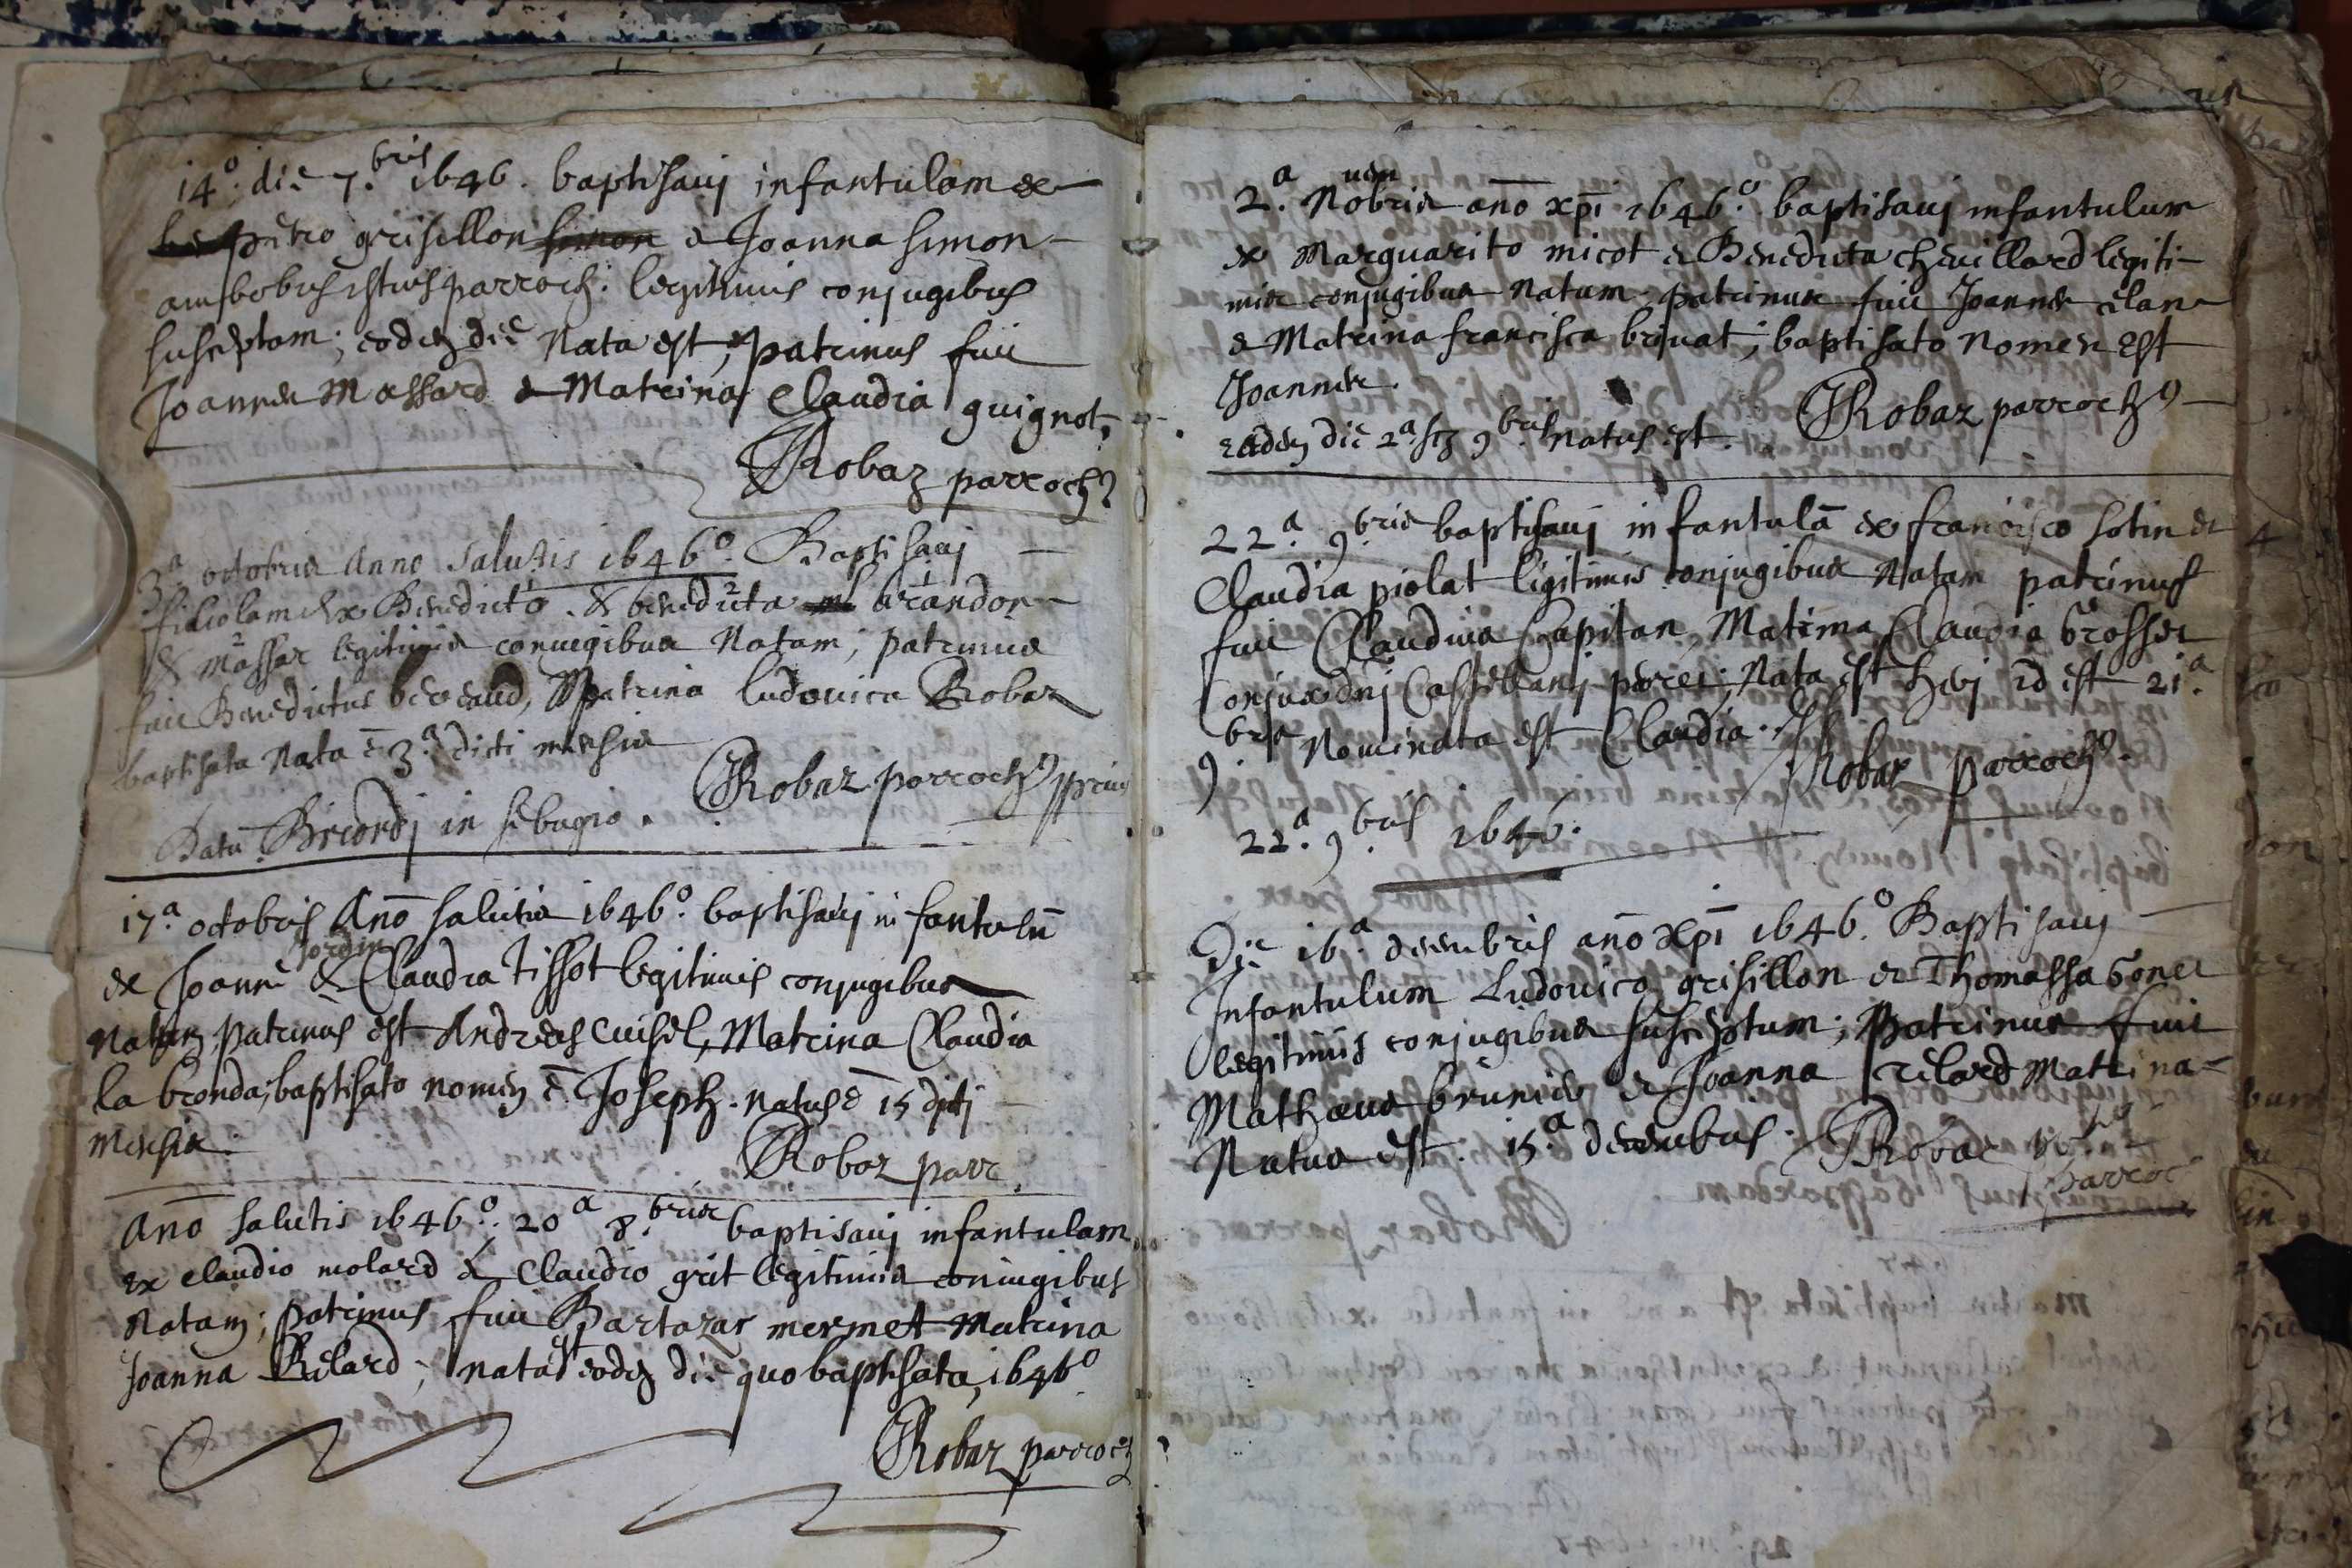 14.° die 7.bris 1646. baptisavj infantulam ex
petro grisillon simon & Joanna simon
ambobus istius parroch: legitimis conjugibus
susceptam; eodem die Nata est, patrinus fuit
Joannes Massard & Matrina Claudia guignot,
Robaz parroch9
3.a octobris Anno salutis 1646.° Baptisavj
filiolam Ex Benedicto & benedicta brandon
& massar legitimis coniugibus Natam; patrinus
fuit Benedictus beroaud, Matrina ludovica Robaz
baptisata Nata ē 3.a dicti mensis
Robaz parroch9
in sebugio.
17.a octobris Anō salutis 1646.° baptisavj infantulū
Jordin
ex Joanne & Claudia Tissot legitimis conjugibus
Natum patrinus est Andreas Cuisel, Matrina Claudia
la bronda; baptisato nomen ē Joseph. natus ē 15 dicti
Mensis.
Robaz parr.
Anō salutis 1646.° 20.a 8.bris baptisavj infantulam
ex claudio molard & Claudio grit legitimis coniugibus
Natam; patrinus fuit Bartazar mermet Matrina
Joanna Relard; nata est eodem die quo baptisata, 1646.°
Robaz parroch
2.a Novembris anō xpi 1646.° baptisavj infantulum
ex Marguarito micot & Benedicta chevillard legiti-
mis conjugibus Natum, patrinus fuit Joannes
& Matrina francisca brunat; baptisato Nomen est
Joannes.
Robaz parroch9
eadem die 2.a 9.bris natus est.
22.a 9.bris baptisavj infantulā ex francisco sotin &
Claudia piolat legitimis conjugibus Natam patrinus
fuit Claudius Capitan, Matrina Claudia brosset
Conjux dnj Castellanj Nata est herj id est 21.a
9.bris Nominata est Claudia.
Robaz parroch9.
22.a 9.bris 1646.
Die 16.a decembris anō xpi 1646.° Baptisavj
Infantulum Ludovico grisillon & Thomassa Gonet
legitimis conjugibus susceptum; Patrinus fuit
Mathaeus brunier & Joanna relard Matrina
Natus est. 15.a decembris. Robaz
parroc